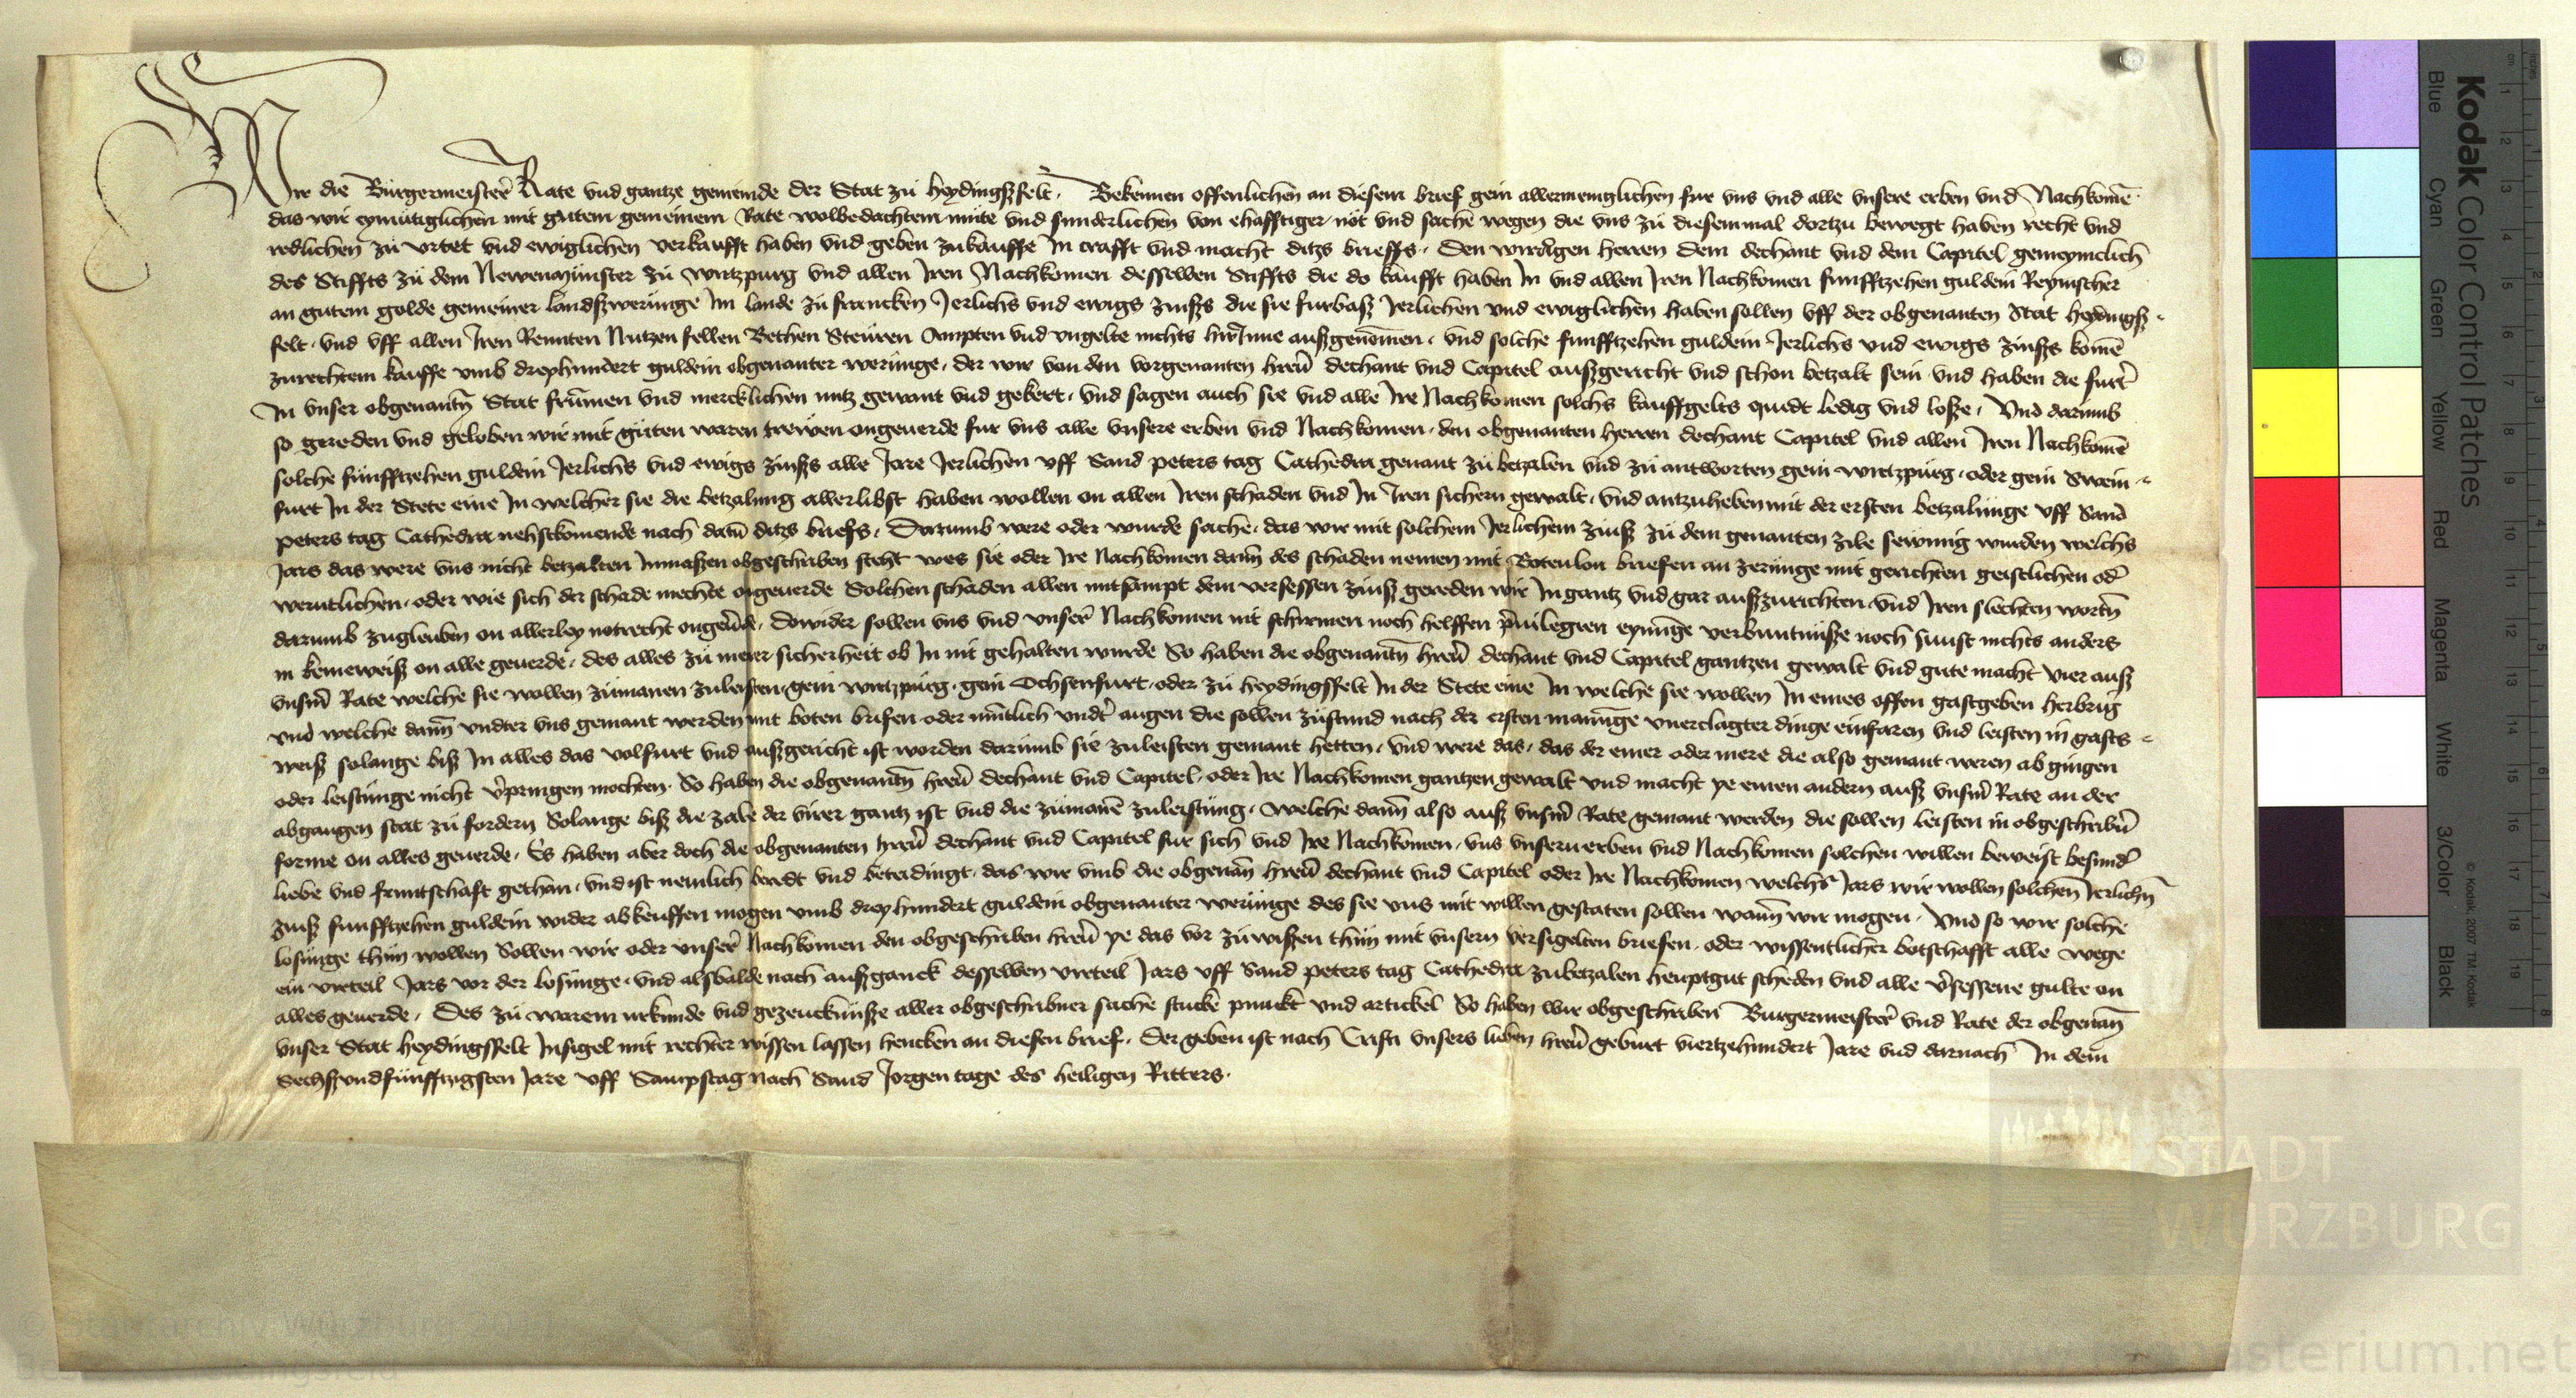 Wir die Bürgermeister Rate vnd gantze gemeinde der Stat zu heydingßfelt. Bekennen offenlichen an diesem brief gein allermeniglichen fur vns vnd alle vnsere erben vnd Nachkomē
das wir eynmütiglichen mit gutem gemeinem Rate wolbedachtem mute vnd sunderlichen von ehafftiger not vnd sache wegen die vns zu diesemmal dortzu bewegt haben recht vnd
redlichen zu vrtet vnd ewiglichen verkaufft haben vnd geben zukauffe In crafft vnd macht ditzs brieffs. Den wirdigen herren dem dechant vnd dem Capitel gemeynclich
des Stiffts zu dem Newenmünster zu wirtzpurg vnd allen Iren Nachkomen desselben Stiffts die do kaufft haben In vnd allen Iren Nachkomen funfftzehen guldein Reynischer
an gutem golde gemeiner landßwerunge Im lande zu francken Jerlichs vnd ewigs zinßs die sie furbaß Jerlichen vnd ewiglichen haben sollen vff der obgenanten Stat heydingß
felt. vnd vff allen Iren Rennten Nutzen fellen Bethen Steuren Ampten vnd vngelte nichts hirInne außgenōmen. vnd solche funfftzehen guldein Jerlichs vnd ewigs zinßs komē
zurechtem kauffe vmb dreyhundert guldein obgenanter werunge. der wir von den vorgenanten hreñ dechant vnd Capitel außgericht vnd schon betzalt sein vnd haben die furt
In vnser obgenantñ Stat frūmen vnd mercklichen nutz gewant vnd gekert. vnd sagen auch sie vnd alle Ire Nachkomen solchs kauffgelts quidt ledig vnd loße. Vnd darumb
so gereden vnd geloben wir mit guten waren trewen ongeuerde fur vns alle vnsere erben vnd Nachkomen. den obgenanten herren dechant Capitel vnd allen Iren Nachkomē
solche funfftzehen guldein Jerlichs vnd ewigs zinßs alle Jare Jerlichen vff Sand peters tag Cathedra genant zu betzalen vnd zu antworten gein wirtzpurg. oder gein Swein
furt In der Stete eine In welcher sie die betzalung allerlibst haben wollen on allen Iren schaden vnd In Iren sichern gewalt. vnd antzuheben mit der ersten betzalunge vff Sand
peters tag Cathedra nehstkomende nach datū ditzs briefs. Darumb were oder wurde sache. das wir mit solchem Jerlichem zinß zu dem genanten zile sewmig wurden welchs
Jars das were vns nicht betzalten Inmaßen obgeschriben steht wes sie oder Ire Nachkomen dann des schaden nemen mit Botenlon briefen an zerunge mit gerichten geistlichen od
werntlichen. oder wie sich der schade mechte ongeuerde Solchen schaden allen mitsampt dem versessen zinß gereden wir In gantz vnd gar außzurichten vnd Iren slechten wortñ
darumb zuglewben on allerley notrecht ongeuerde. Dowider sollen vns vnd vnser Nachkomen nit schirmen noch helffen priuilegien eynunge verbuntnüße noch sunst nichts anders
in keineweiß on alle geuerde. des alles zu merer sicherheit ob In nit gehalten wurde So haben die obgenantñ hreñ dechant vnd Capitel gantzen gewalt vnd gute macht vier auß
vnsm̄ Rate welche sie wollen zumanen zuleisten. gein wirtzpurg. gein Ochsenfurt. oder zu heydingsfelt In der Stete eine In welche sie wollen In eines offen gastgeben herbrig
vnd welche dann vndter vns gemant werden mit boten brifen oder mūtlich vndt augen die sollen zustund nach der ersten manunge vnerclagter dinge einfaren vnd leisten in gasts
weiß solange biß In alles das volfurt vnd außgericht ist worden darumb sie zuleisten gemant hetten. vnd were das. das der einer oder mere die also gemant weren ab gingen
oder leistunge nicht v̄pringen mochten. So haben die obgenantñ hreñ dechant vnd Capitel. oder Ire Nachkomen gantzen gewalt vnd macht ye einen andern auß vnsm̄ Rate an der
abgangen stat zu fordern Solange biß die zale der virer gantz ist vnd die zumanē zuleistung. welche dann also auß vnsm̄ Rate gemant werden die sollen leisten in obgeschribñ
forme on alles geuerde. Es haben aber doch die obgenanten hreñ dechant vnd Capitel fur sich vnd Ire Nachkomen. vns vnsern erben vnd Nachkomen solchen willen beweist besund
liebe vnd fruntschaft gethan. vnd ist nemlich beredt vnd beteidingt. das wir vmb die obgenañ hreñ dechant vnd Capitel oder Ire Nachkomen welchs Jars wir wollen solchen Jerlichñ
zinß funfftzehen guldein wider abkeuffen mogen vmb drey hundert guldein obgenanter werunge des sie vns mit willen gestaten sollen wann wir mogen. Vnd so wir solche
losunge thun wollen Sollen wir oder vnser Nachkomen den obgeschriben hreñ ye das vor zu wißen thun mit vnsern versigelten briefen. oder wissentlicher botschafft alle wege
ein virteil Jars vor der losunge. vnd alsbalde nach außganck desselben virteil Jars vff Sand peters tag Cathedra zubetzalen heuptgut scheden vnd alle v̄sessene gulte on
alles geuerde. Des zu warem urkunde vnd gezeucknüße aller obgeschribner sache stucke punckt vnd artickel So haben wir obgeschriben Burgermeister vnd Rate der obgenañ
vnser Stat heydingsfelt Insigel mit rechter wissen lassen hencken an diesen brief. Der geben ist nach Cristi vnsers lieben hreñ geburt viertzehundert Jare vnd darnach In dem
Sechßvndfünfftzigsten Jare vff Sampstag nach Sand Jorgen tage des heiligen Ritters.
Kodak Color Control Patches
Blue Cyan Green Yellow Red Magenta White 3/Color Black
© Kodak, 2007 TM: Kodak
STADT
WÜRZBURG